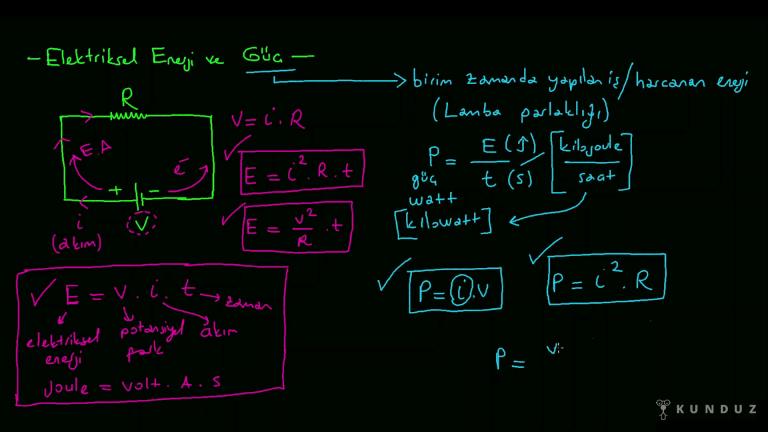 - Elektriksel Enerji ve Güç -
birim zamanda yapılan iş/harcanan enerji
(Lamba parlaklığı)
R
E.A
e-
+ -
i
(akım)
V
V = i . R
E = i² . R . t
E = V²/R . t
P = E (J) / t (s) [kilojoule / saat]
güç
watt
[kilowatt]
P = i . V
P = i² . R
E = V . i . t → zaman
elektriksel enerji
potansiyel fark
akım
Joule = volt . A . s
P = V
KUNDUZ